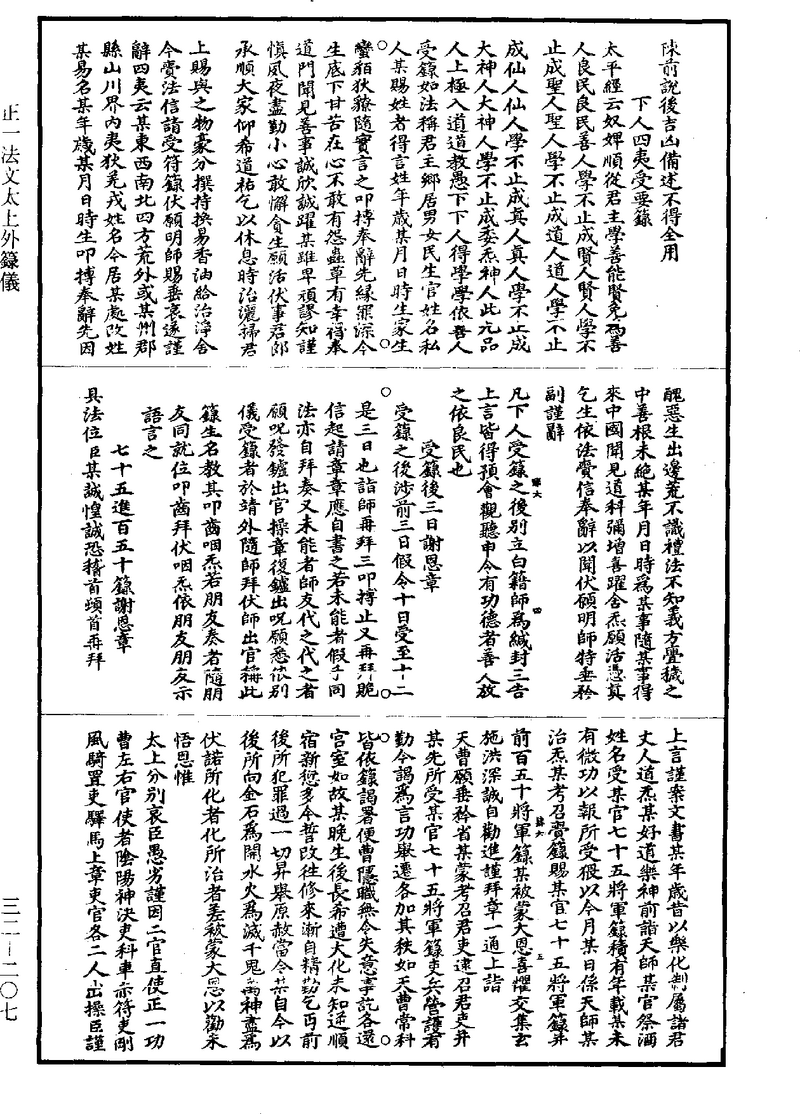 陳前說後吉凶備述不得全用
下人四夷受要籙
太平經云奴婢順從君主學善能賢免為善
人良民良民善人學不止成賢人賢人學不
止成聖人聖人學不止成道人道人學不止
成仙人仙人學不止成真人真人學不止成
大神人大神人學不止成委炁神人此九品
人上極入道道教愚下下人得學學依吾人
受籙如法稱君主鄉居男女民生官姓名私
人某賜姓者得言姓年歲某月日時生家生
蠻貊狄獠隨實言之叩搏奉辭先緣罪深今
生底下甘苦在心不敢有怨蟲草有幸得奉
道門聞見善事誠欣誠躍某雖卑頑謬知謹
慎夙夜盡勤小心敢懈貪生願活伏事君郎
承順大家仰希道祐乞以休息時治灑掃君
上賜與之物豪分撰持換易香油給治淨舍
今賫法信請受符籙伏願明師賜垂哀遂謹
辭四夷云某東西南北四方荒外或某州郡
縣山川界內夷狄羌戎姓名今居某處改姓
某易名某年歲某月日時生叩搏奉辭先因
醜惡生出邊荒不識禮法不知義方舋穢之
中善根未絕某年月日時為某事隨某事得
來中國聞見道科彌增喜躍含炁願活憑真
乞生依法賫信奉辭以聞伏願明師特垂矜
副謹辭
凡下人受籙之後別立白籍師為緘封三告
上言皆得預會觀聽申令有功德者善人放
之依良民也
受籙後三日謝恩章
受籙之後涉前三日假令十日受至十二
是三日也詣師再拜三叩搏止又再拜跪
信起請章章應自書之若未能者假手同
法亦自拜奏又未能者師友代之代之者
願呪發鑪出官操章復鑪出呪願悉依別
儀受籙者於靖外隨師拜伏師出官稱此
籙生名教其叩齒咽炁若朋友奏者隨朋
友同就位叩齒拜伏咽炁依朋友朋友示
語言之
七十五進百五十籙謝恩章
具法位臣某誠惶誠恐稽首頓首再拜
上言謹案文書某年歲昔以樂化制屬諸君
丈人道炁某好道樂神前詣天師某官祭酒
姓名受某官七十五將軍籙積有年載某未
有微功以報所受復以今月某日係天師某
治炁某考召賞籙賜某官七十五將軍籙并
前百五十將軍籙某被蒙大恩喜懼交集玄
施洪深誠自勸進謹拜章一通上詣
天曹願垂矜省某蒙考召君吏速召君吏并
某先所受某官七十五將軍籙吏兵營護有
勤今謁為言功舉遷各加其秩如天曹常科
皆依籙謁署便曹隱職無令失意事訖各還
宮室如故某晚生後長希遭大化未知逆順
宿新愆多今誓改往修來漸自精勤乞丐前
後所犯罪過一切昇舉原赦當令某自今以
後所向金石為開水火為滅千鬼萬神盡為
伏諾所化者化所治者差被蒙大恩以勸來
悟恩惟
太上分別哀臣愚劣謹因二官直使正一功
曹左右官使者陰陽神決吏科車赤符吏剛
風騎置吏驛馬上章吏官各二人出操臣謹
正一法文太上外籙儀
三二—二〇七